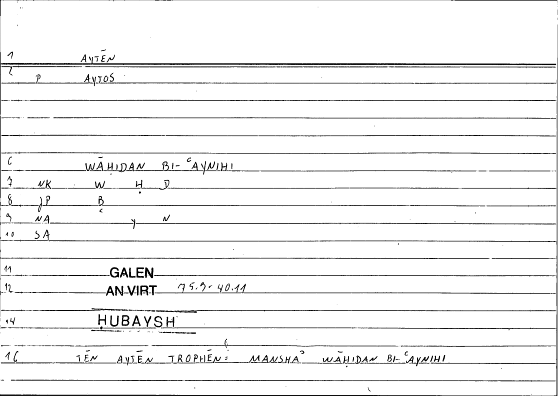 1 AYTĒN
2 P AYTOS
6 WĀḤIDAN BI-ʿAYNIHI
7 NK W Ḥ D
8 JP B
9 NA ʿ Y N
10 SA
11 GALEN
12 AN VIRT 75.9-40.11
14 ḤUBAYSH
16 TĒN AYTĒN TROPHĒN: MANSHAʾ WĀḤIDAN BI-ʿAYNIHI